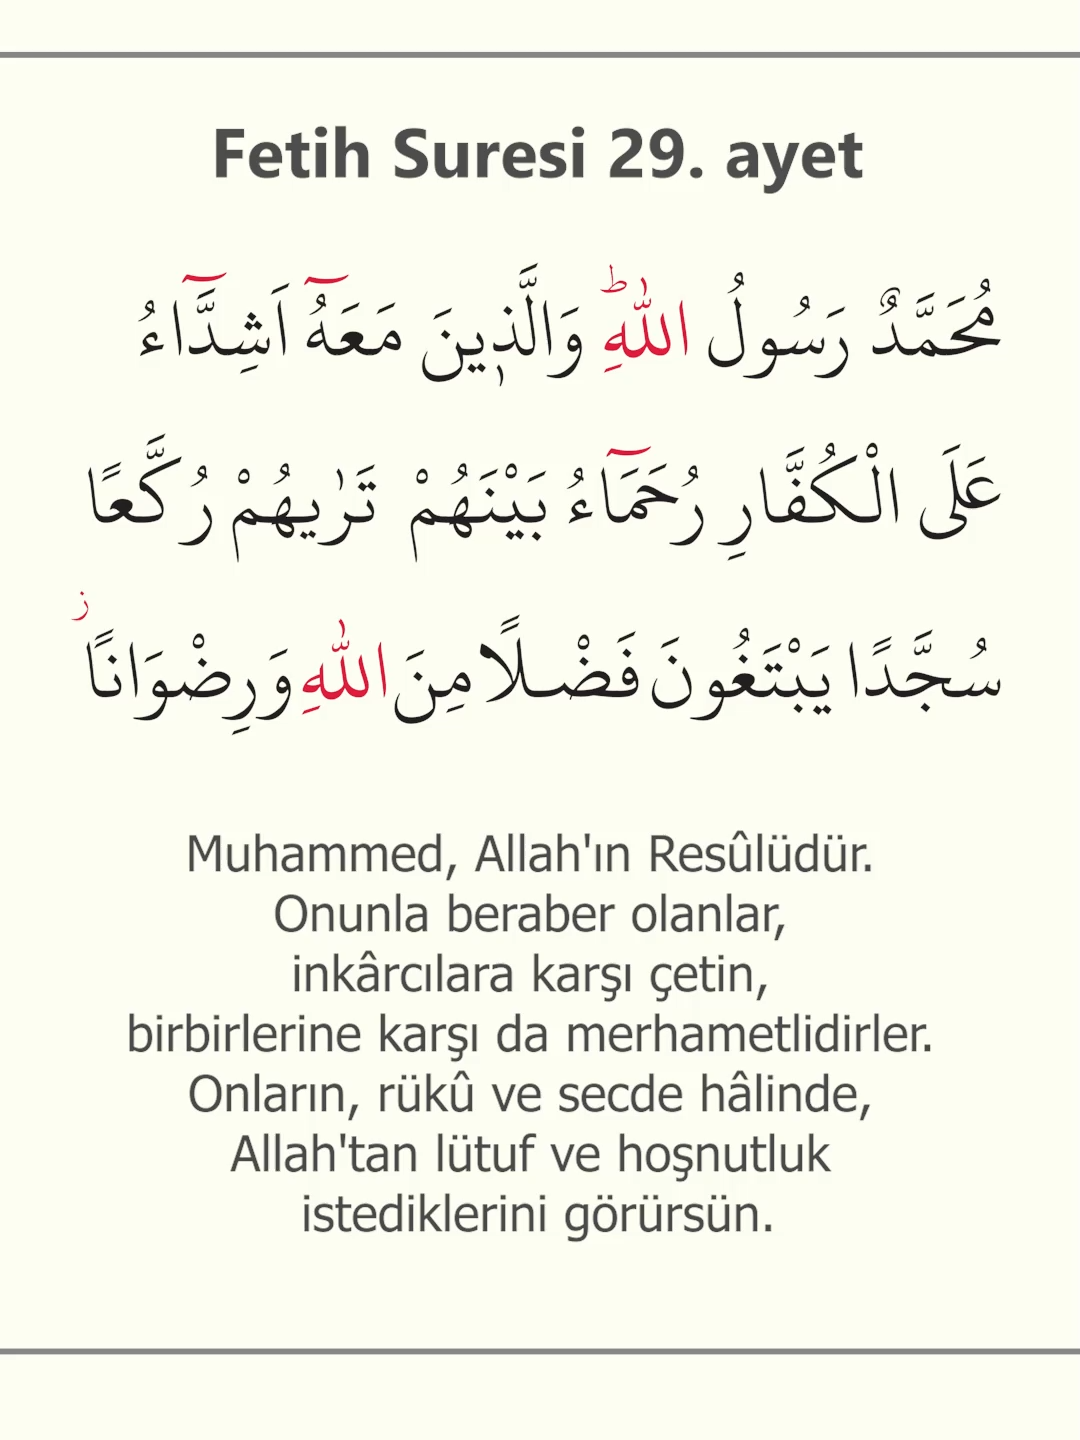 Fetih Suresi 29. ayet
مُحَمَّدٌ رَسُولُ اللّٰهِۜ وَالَّذ۪ينَ مَعَهُٓ اَشِدَّٓاءُ
عَلَى الْكُفَّارِ رُحَمَٓاءُ بَيْنَهُمْ تَرٰيهُمْ رُكَّعًا
سُجَّدًا يَبْتَغُونَ فَضْلًا مِنَ اللّٰهِ وَرِضْوَانًاۘ
Muhammed, Allah'ın Resûlüdür.
Onunla beraber olanlar,
inkârcılara karşı çetin,
birbirlerine karşı da merhametlidirler.
Onların, rükû ve secde hâlinde,
Allah'tan lütuf ve hoşnutluk
istediklerini görürsün.